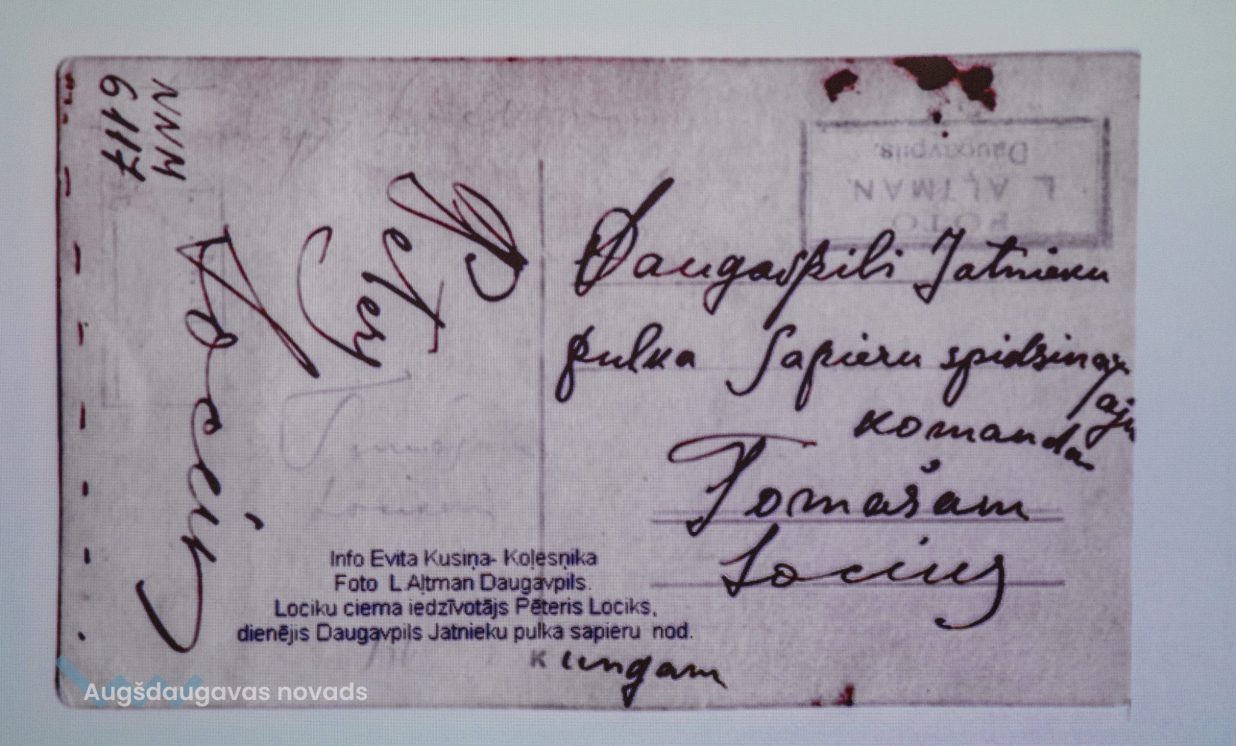 NNM
6117
Petery
Locik
FOTO
L AĻTMAN
Daugavpils.
Daugavpili Jatnieku
pulka Sapieru
komandas
Tomašam
Info Evita Kusiņa- Koļesņika
Foto L.Aļtman Daugavpils.
Lociku ciema iedzīvotājs Pēteris Lociks,
dienējis Daugavpils Jatnieku pulka sapieru nod.
Kungam
Augšdaugavas novads